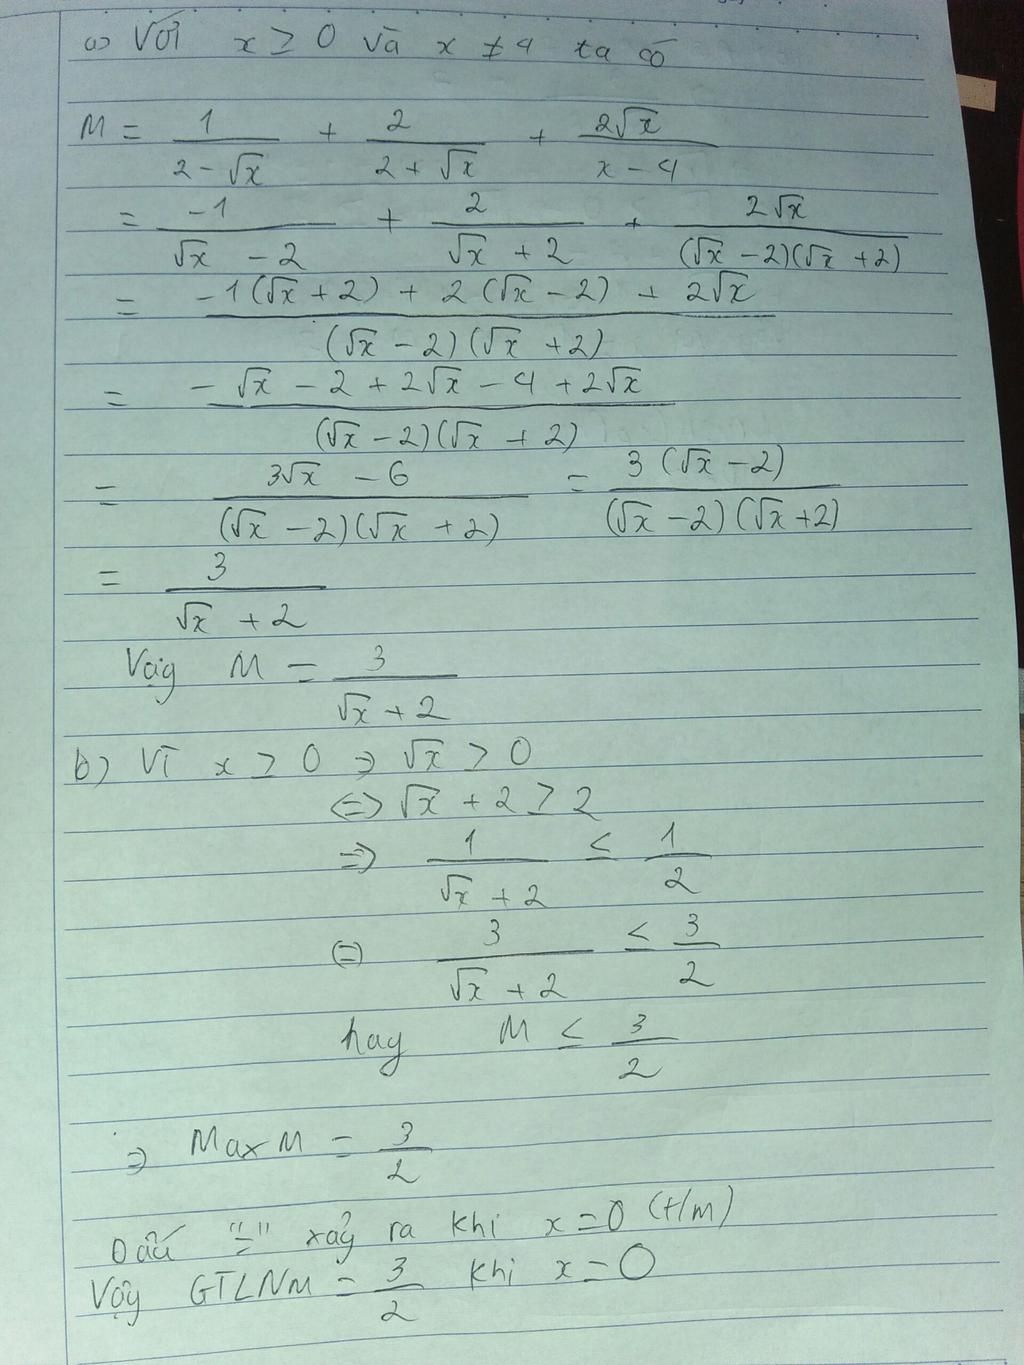 a) Với x ≥ 0 và x ≠ 4 ta có
M = 1/(2 - √x) + 2/(2 + √x) + 2√x/(x - 4)
= -1/(√x - 2) + 2/(√x + 2) + 2√x/((√x - 2)(√x + 2))
= (-1(√x + 2) + 2(√x - 2) + 2√x)/((√x - 2)(√x + 2))
= (-√x - 2 + 2√x - 4 + 2√x)/((√x - 2)(√x + 2))
= (3√x - 6)/((√x - 2)(√x + 2)) = 3(√x - 2)/((√x - 2)(√x + 2))
= 3/(√x + 2)
Vậy M = 3/(√x + 2)
b) Vì x ≥ 0 => √x ≥ 0
<=> √x + 2 ≥ 2
=> 1/(√x + 2) ≤ 1/2
(=) 3/(√x + 2) ≤ 3/2
hay M ≤ 3/2
=> Max M = 3/2
Dấu "=" xảy ra khi x = 0 (t/m)
Vậy GTLNM = 3/2 khi x = 0